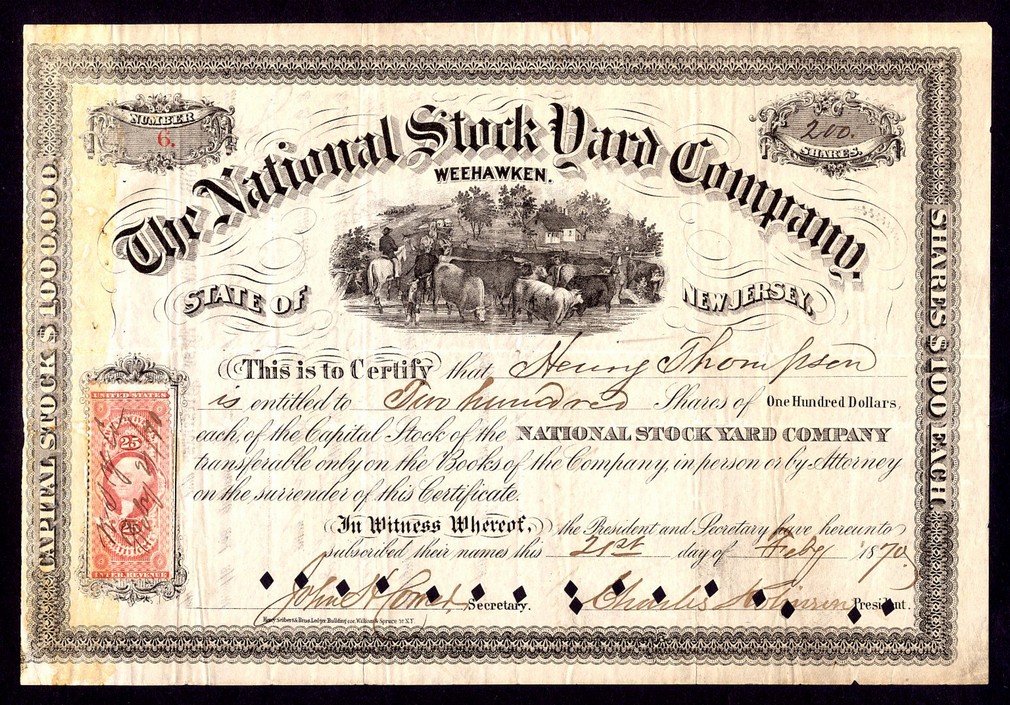 NUMBER
6.
200.
SHARES.
The National Stock Yard Company,
WEEHAWKEN.
STATE OF NEW JERSEY.
CAPITAL STOCK $1,000,000.
SHARES $100 EACH.
This is to Certify that Henry Thompson
is entitled to Two hundred Shares of One Hundred Dollars,
each, of the Capital Stock of the NATIONAL STOCK YARD COMPANY
transferable only on the Books of the Company, in person or by Attorney
on the surrender of this Certificate.
In Witness Whereof, the President and Secretary have hereunto
subscribed their names this 21st day of Feby 1870.
John H Secretary. Charles Robinson President.
Henry Seibert & Bros. Ledger Building cor. William & Spruce St. N.Y.
UNITED STATES
25
25
INTER. REVENUE